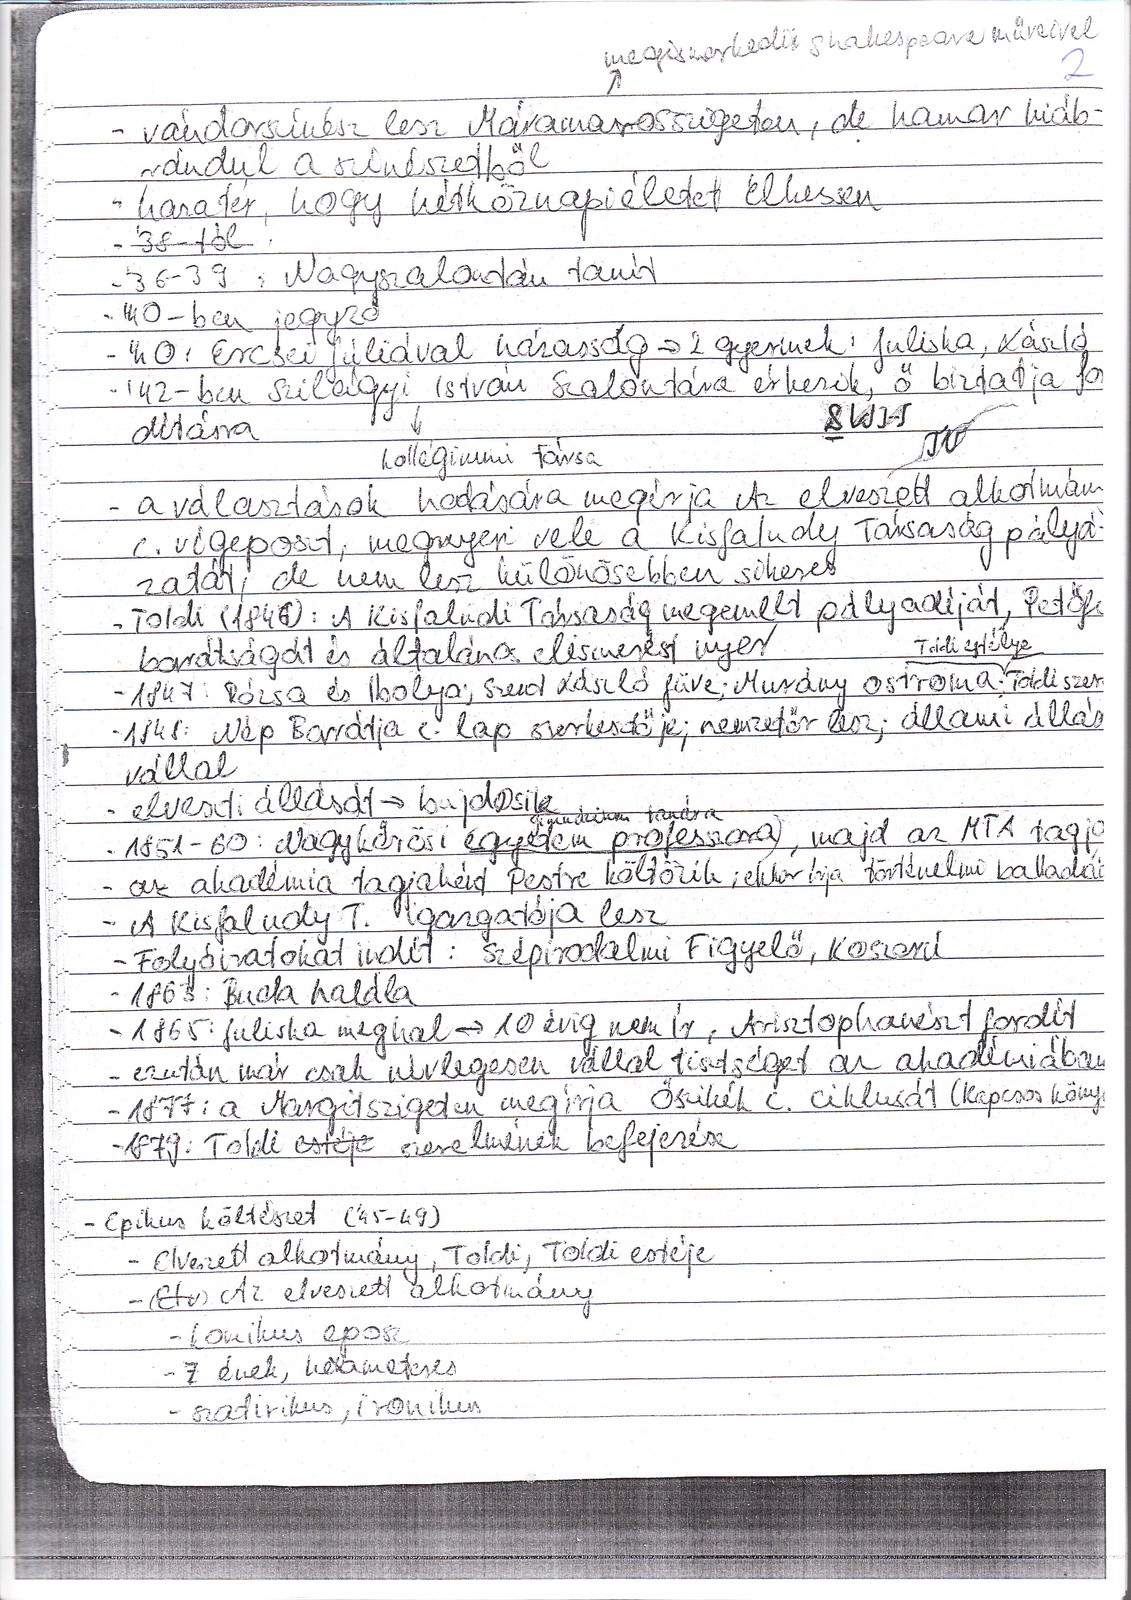 megismerkedik Shakespeare műveivel
2
- vándorszínész lesz Máramarosszigeten, de hamar kiáb-
rándul a színészetből
- hazatér, hogy hétköznapi életet élhessen
- 38-tól
- 36-39 : Nagyszalontán tanít
- '40-ben jegyző
- '40: Ercsei Júliával házasság → 2 gyermek: Juliska, László
- '42-ben Szilágyi István Szalontára érkezik, ő biztatja for
dításra
kollégiumi társa
- a választások hatására megírja Az elveszett alkotmány
c. vígeposzt, megnyeri vele a Kisfaludy Társaság pályá-
zatát, de nem lesz különösebben sikeres
- Toldi (1846): A Kisfaludi Társaság megemelt pályadíját, Petőfi
barátságát és általános elismerést nyer
Toldi estélye
- 1847: Rózsa és Ibolya; Szent László füve; Murány ostroma; Toldi szer
- 1848: Nép Barátja c. lap szerkesztője; nemzetőr lesz; állami állás
vállal
- elveszti állását → bujdosik
gimnázium tanára
- 1851-60: Nagykőrösi egyetem professzora), majd az MTA tagja
- az akadémia tagjaként Pestre költözik; ekkor írja történelmi balladái
- A Kisfaludy T. igazgatója lesz
- Folyóiratokat indít : Szépirodalmi Figyelő, Koszorú
- 1863: Buda halála
- 1865: Juliska meghal → 10 évig nem ír, Arisztophanészt fordít
- ezután már csak névlegesen vállal tisztséget az akadémiában
- 1877: a Margitszigeten megírja Őszikék c. ciklusát (Kapcsos köny
- 1879: Toldi estéje szerelmének befejezése
- Epikus költészet ('45-49)
- Elveszett alkotmány, Toldi, Toldi estéje
- (Elv) Az elveszett alkotmány
- komikus eposz
- 7 ének, hexameteres
- szatirikus, ironikus